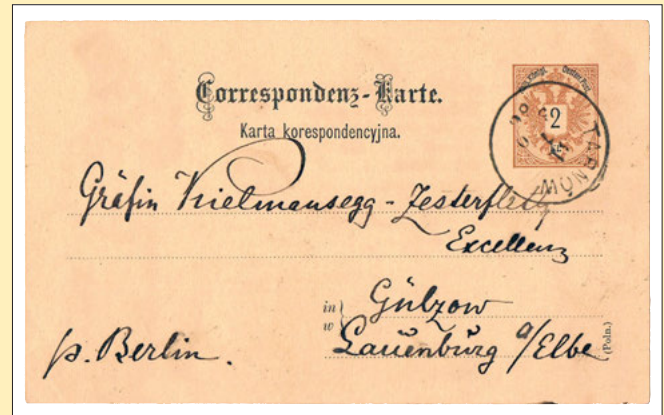 Correspondenz-Karte.
Karta korespondencyjna.
2
Gräfin Kielmansegg - Zesterfleth
Excellenz
in Gülzow
w
p. Berlin. Lauenburg a/Elbe
(Poln.)